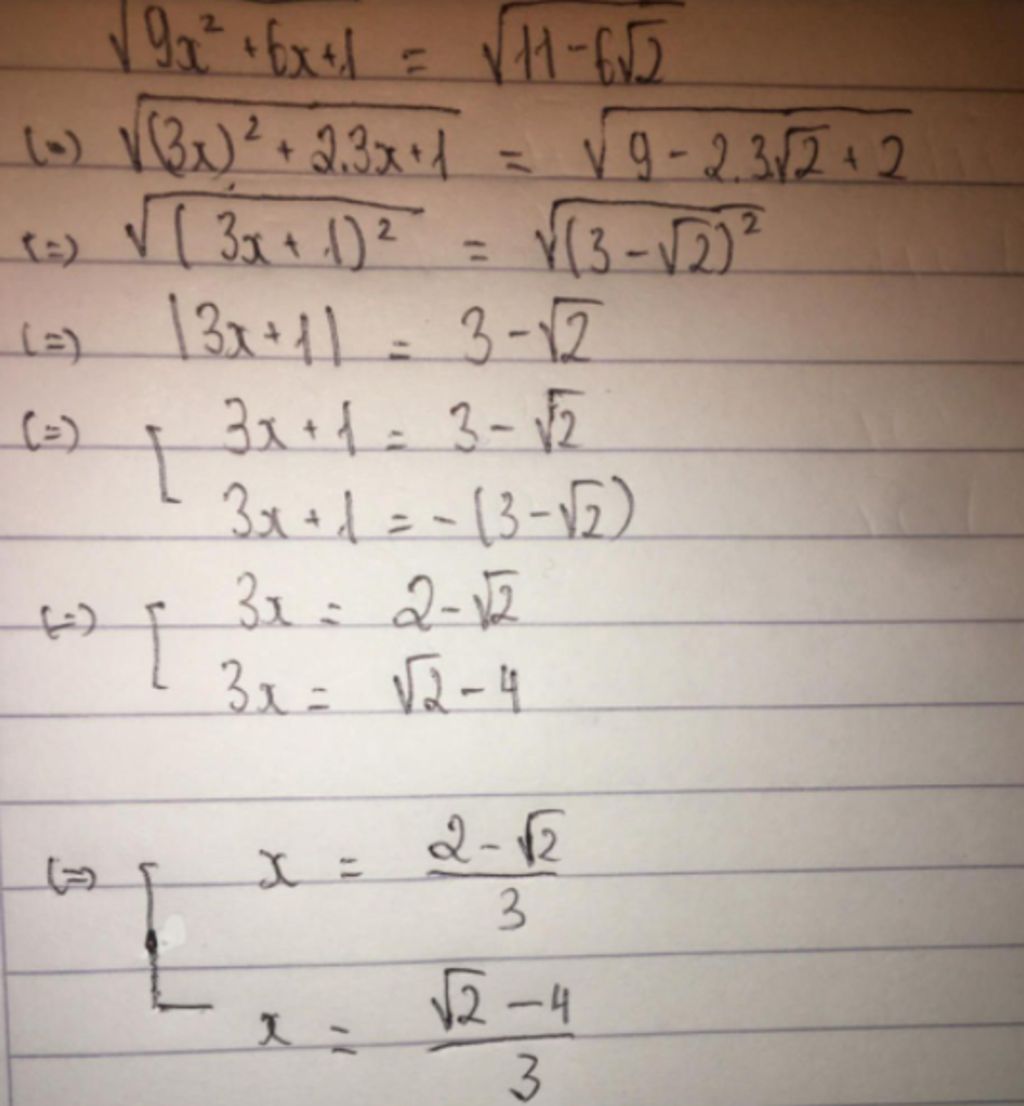 √(9x² + 6x + 1) = √(11 - 6√2)
(=) √((3x)² + 2.3x + 1) = √(9 - 2.3√2 + 2)
(=) √((3x + 1)²) = √((3 - √2)²)
(=) |3x + 1| = 3 - √2
(=) [ 3x + 1 = 3 - √2
3x + 1 = - (3 - √2)
(=) [ 3x = 2 - √2
3x = √2 - 4
(=) [ x = (2 - √2)/3
x = (√2 - 4)/3